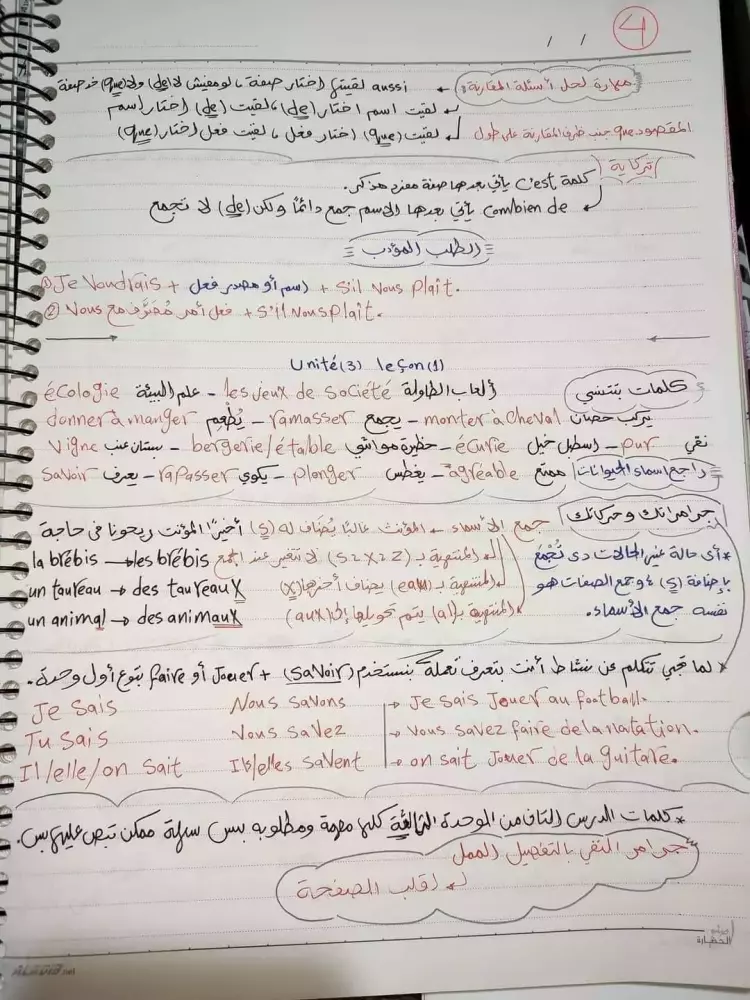 4
/ /
مهارة لحل أسئلة المقارنة: ← aussi لقيتها اختار صفة، لو مفيش لا (de) ولا (que) خد صفة
لقيت اسم اختار (de)، لقيت (de) اختار اسم
المقصود que جنب ظرف المقارنة على طول لقيت (que) اختار فعل، لقيت فعل اختار (que)
تركاية
كلمة c'est يأتي بعدها صفة مفرد مذكر.
combien de يأتي بعدها الاسم جمع دائمًا ولكن (de) لا تجمع
الطلب المؤدب
① Je Voudrais + اسم أو مصدر فعل + s'il vous plaît.
② Vous فعل أمر مُصَرَّف مع + s'il vous plaît.
Unité(3) leçon(1)
كلمات بتتنسي ألعاب الطاولة les jeux de société - علم البيئة écologie
يركب حصان monter à cheval - يجمع ramasser - يُطعِم donner à manger
نقي pur - اسطبل خيل écurie - حظيرة مواشي bergerie/étable - بستان عنب vigne
راجع اسماء الحيوانات ممتع agréable - يغطس plonger - يكوي rapasser - يعرف savoir
جرامراتك وحركاتك جمع الأسماء ← المؤنث غالبًا يُضاف له (s)
* أى حالة غير الحالات دى تُجْمع المنتهية بـ (s z x z) لا تتغير عند الجمع la brébis → les brébis
بإضافة (s) وجمع الصفات هو المنتهية بـ (eau) يضاف أخرها (x) un taureau → des taureaux
نفسه جمع الأسماء. المنتهية بـ (al) يتم تحويلها إلى (aux) un animal → des animaux
لما تيجي تتكلم عن نشاط أنت بتعرف تعمله بنستخدم (savoir) + Jouer أو faire بتوع أول وحدة.
Je sais Nous savons → Je sais Jouer au football.
Tu sais Vous savez → vous savez faire de la natation.
Il/elle/on sait Ils/elles savent → on sait Jouer de la guitare.
* كلمات الدرس التاني من الوحدة الثالثة كلها مهمة ومطلوبه بس سهلة ممكن تبص عليها بس.
* جرامر النفي بالتفصيل الممل
اقلب الصفحة